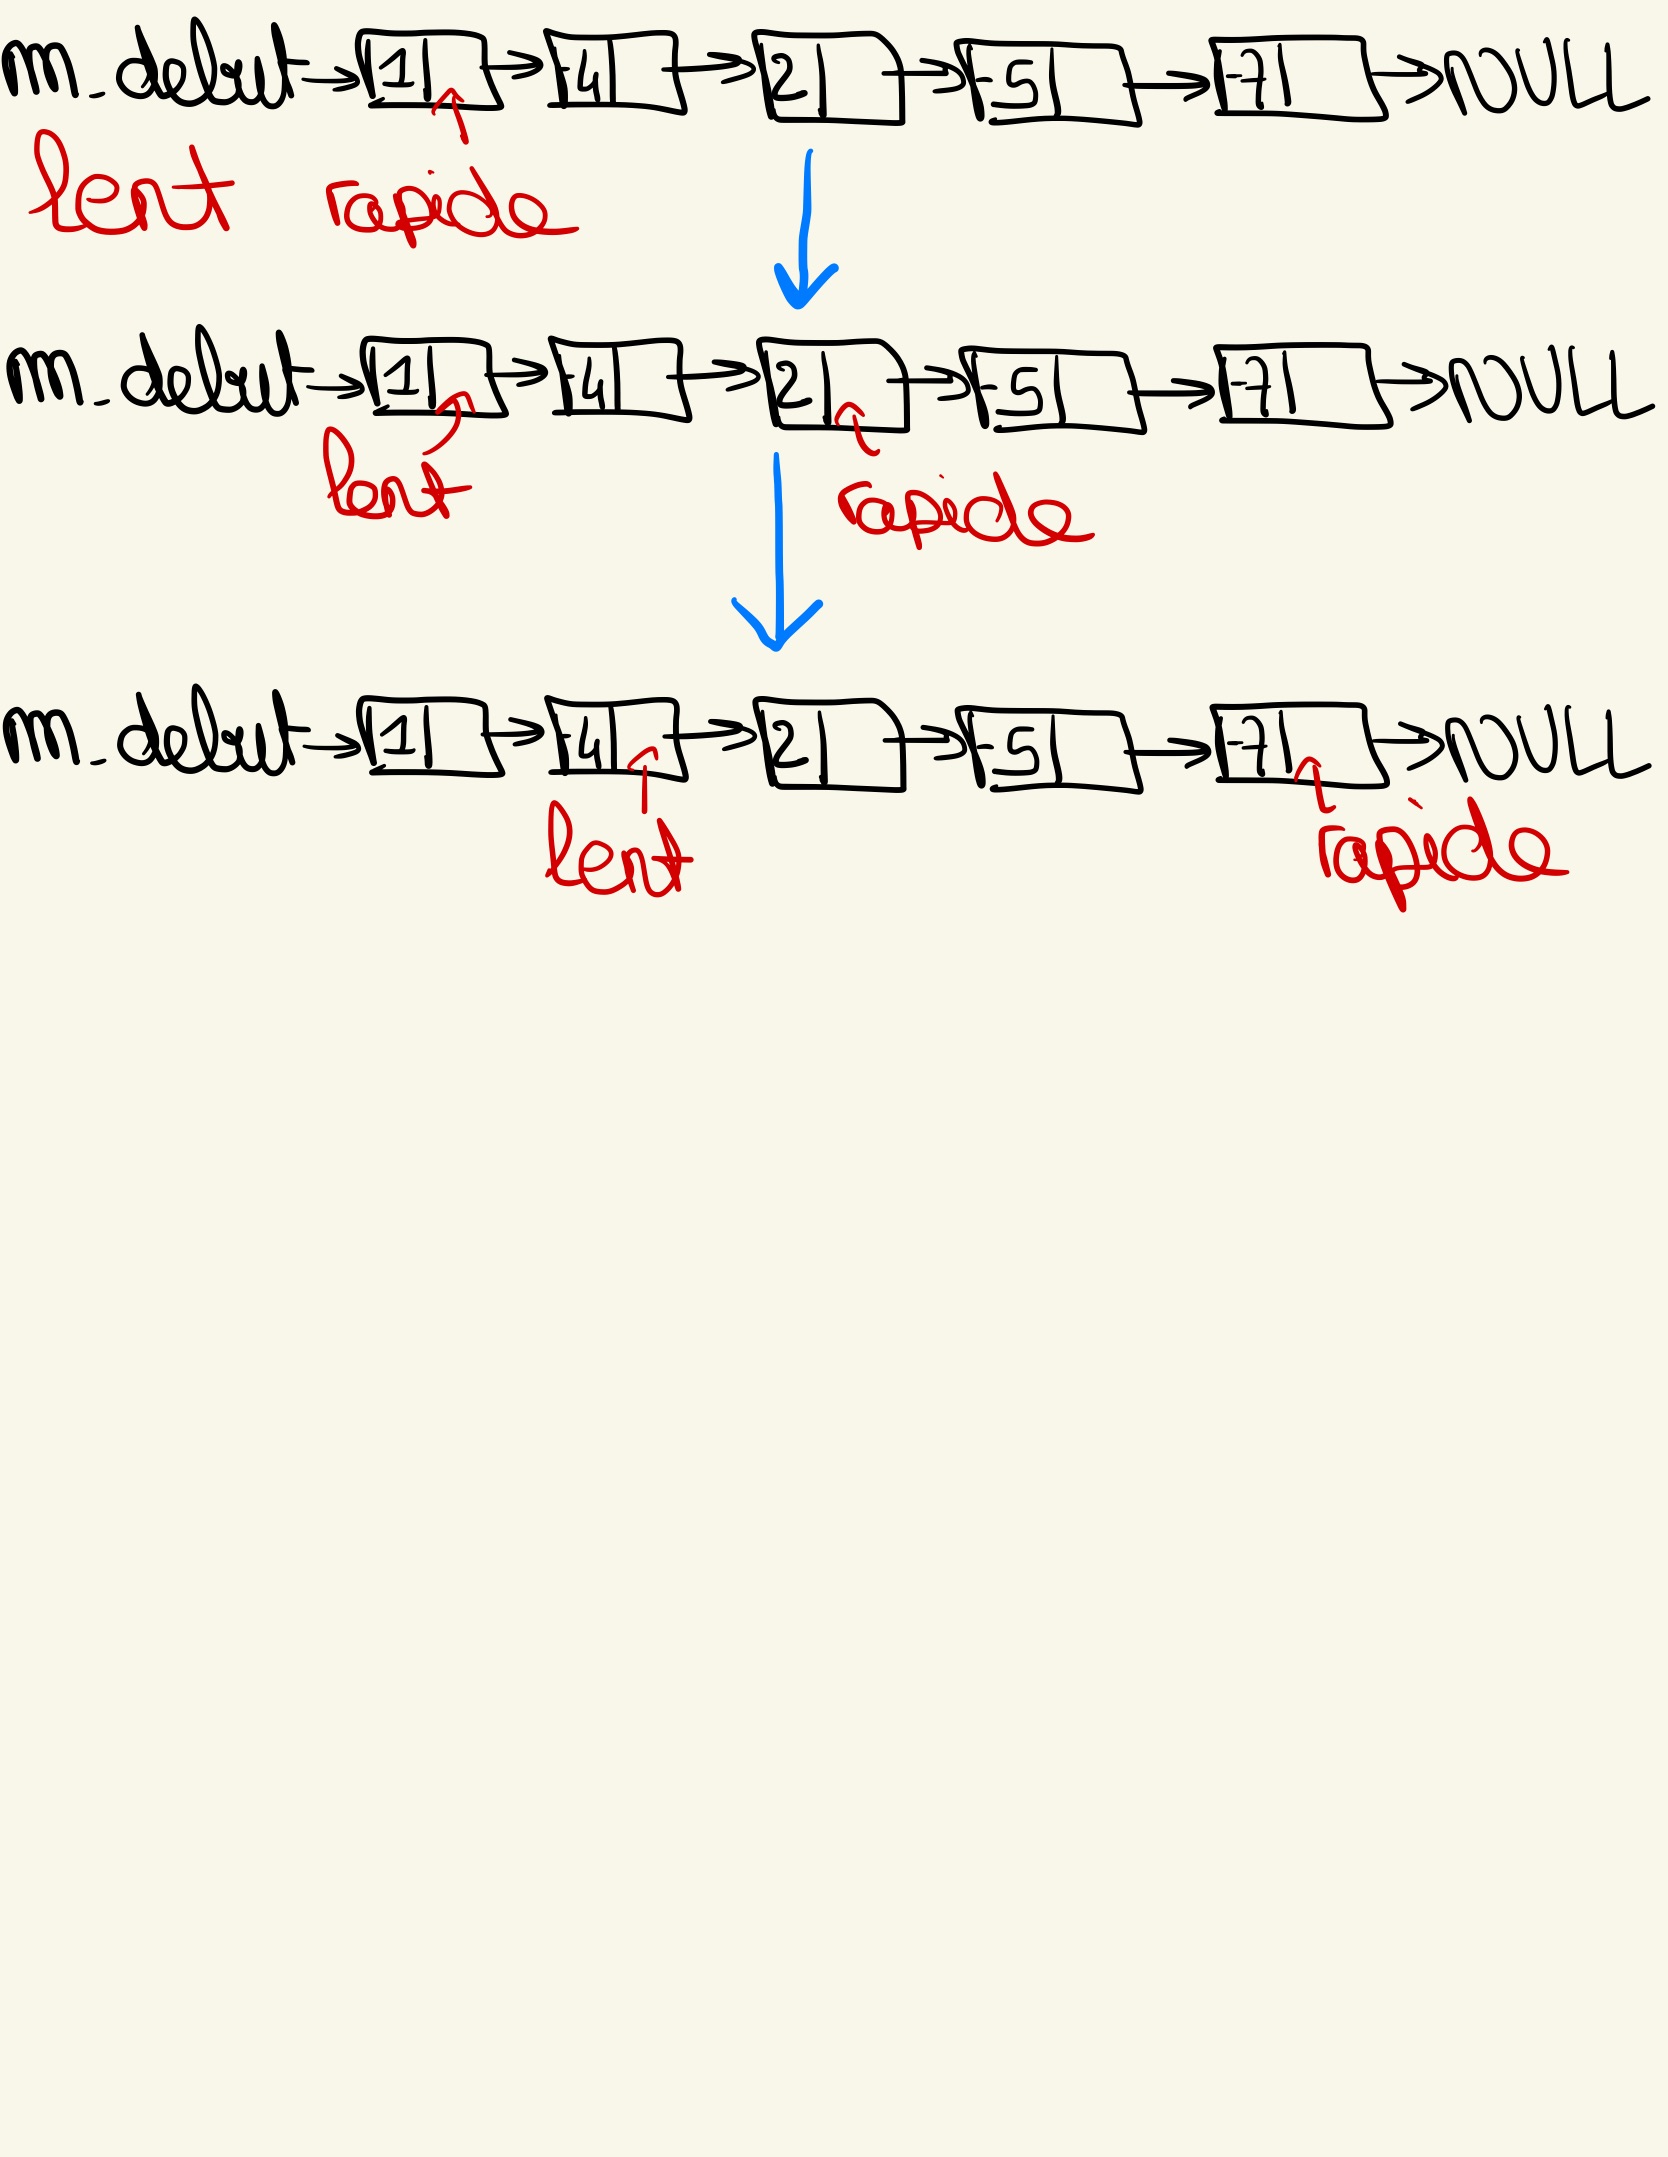 m_debut → 1 → -4 → 2 → -5 → -7 → NULL
lent rapide
m_debut → 1 → -4 → 2 → -5 → -7 → NULL
lent rapide
m_debut → 1 → -4 → 2 → -5 → -7 → NULL
lent rapide